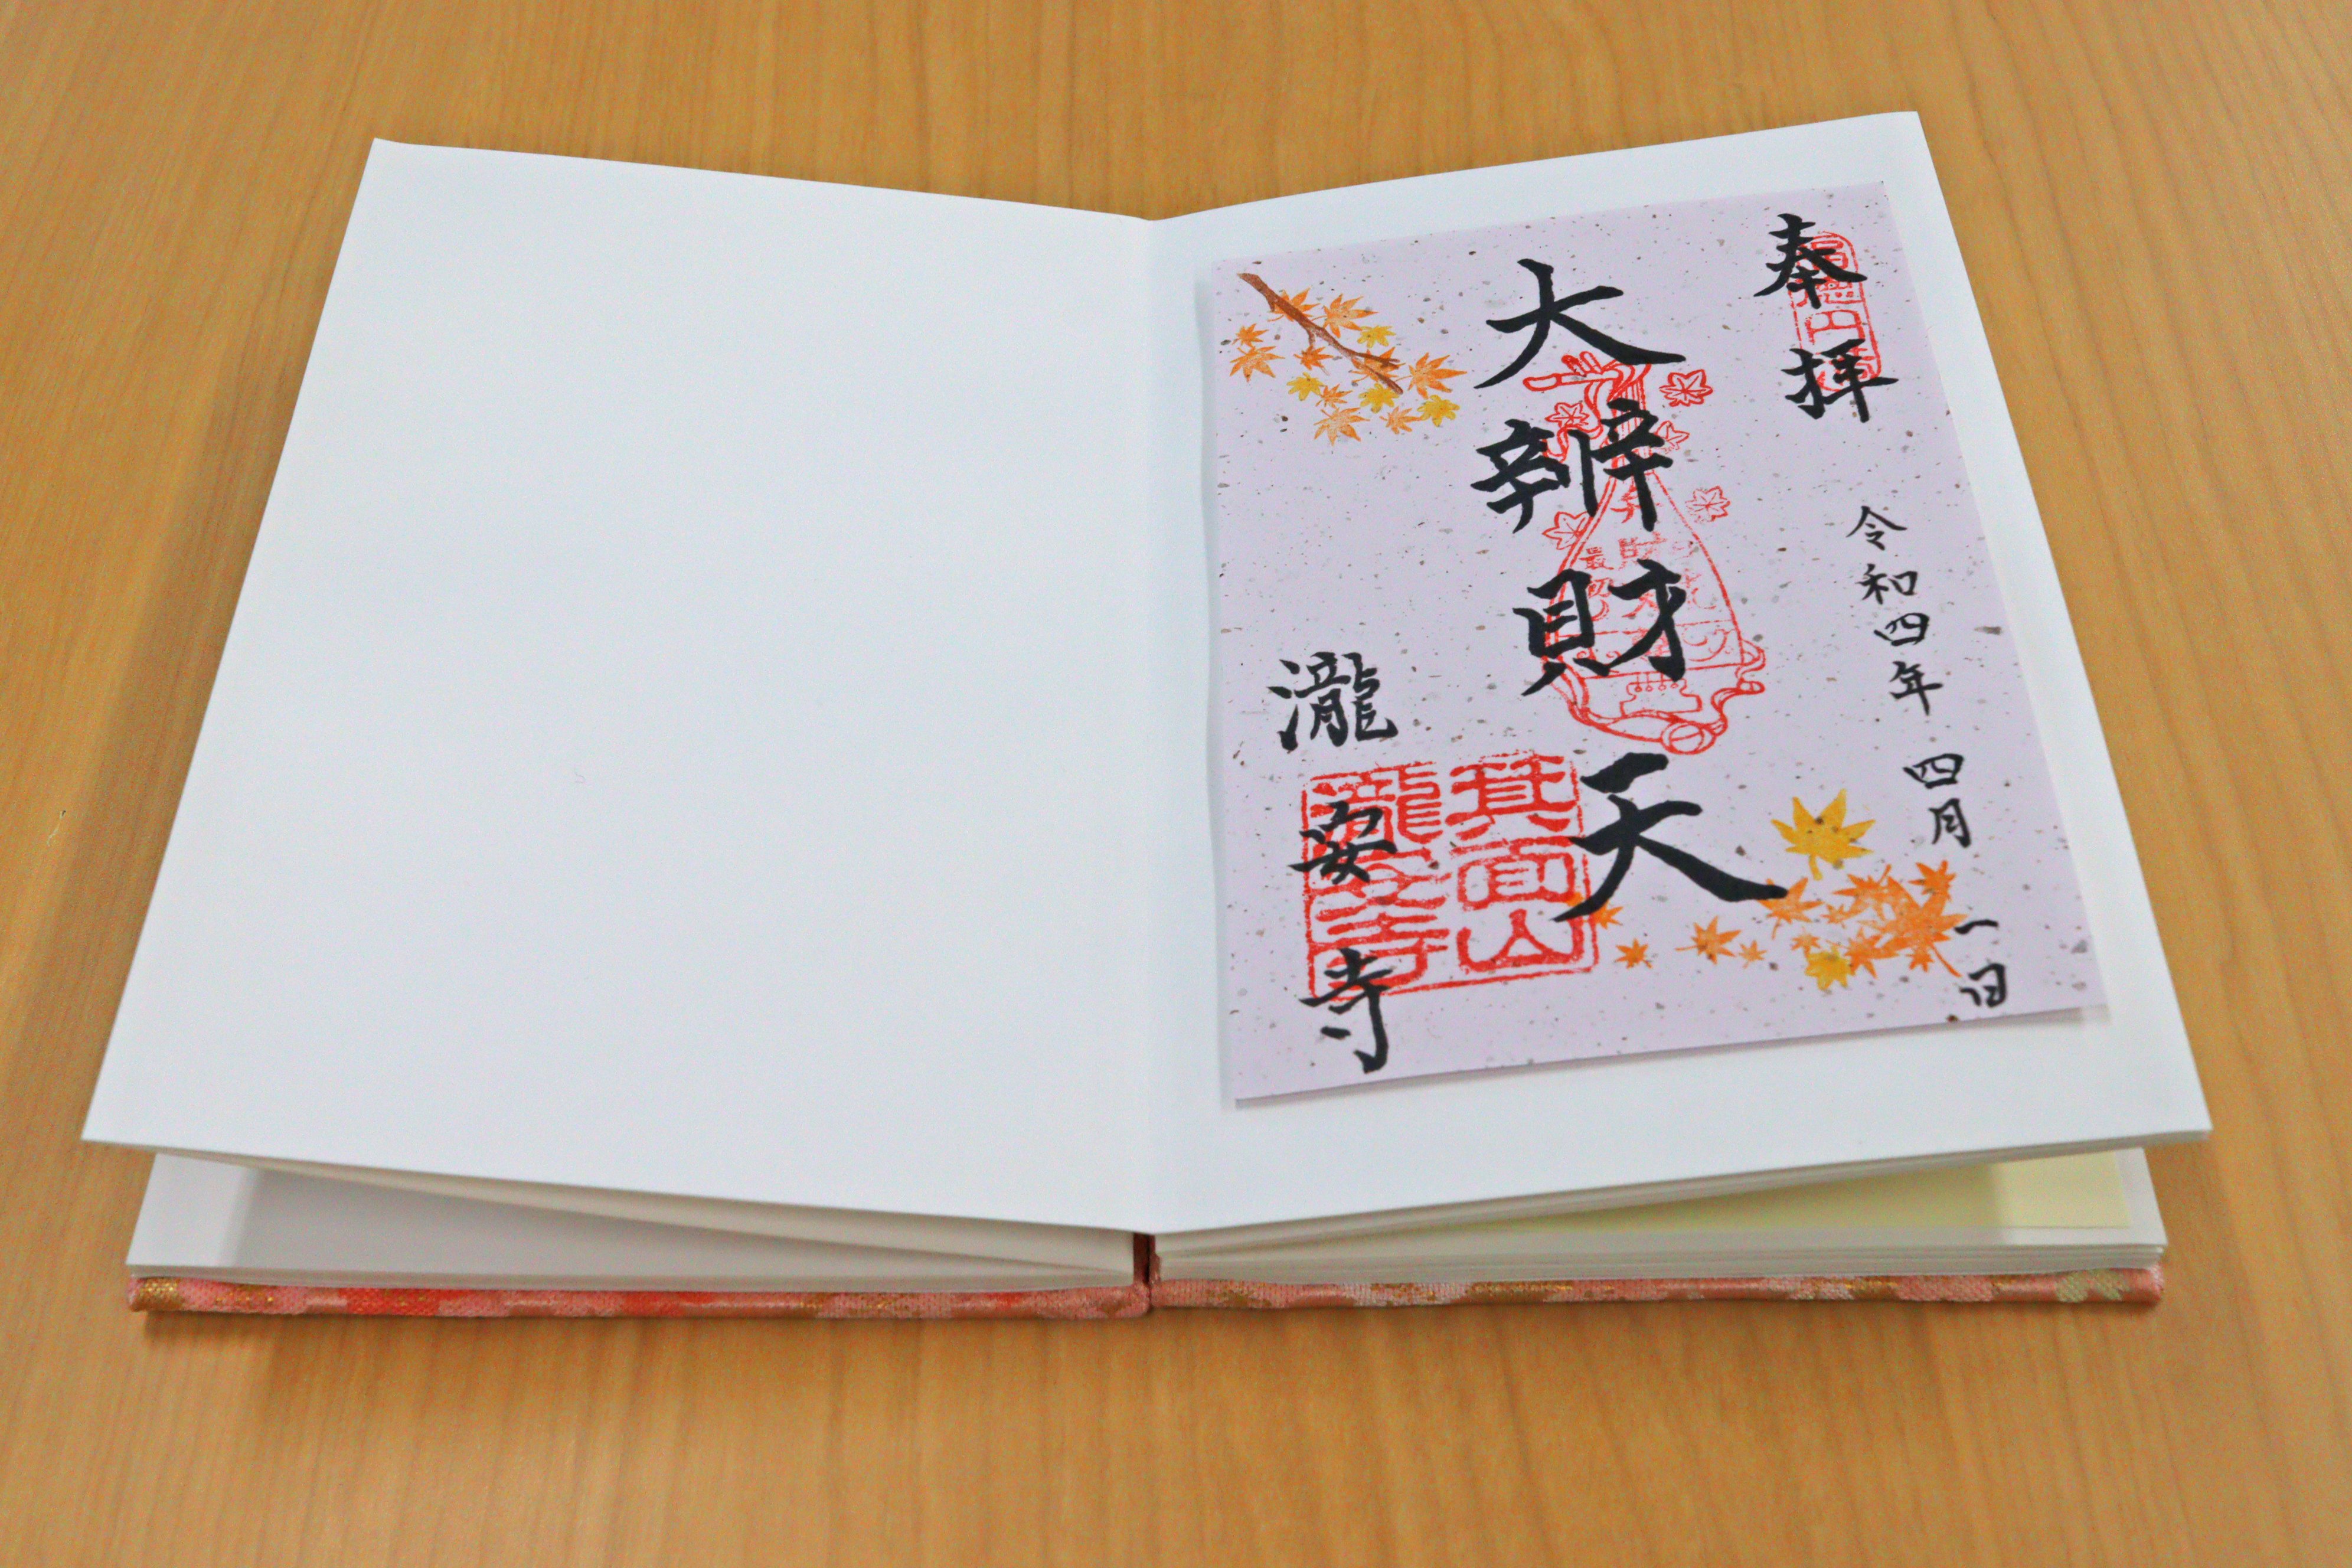 奉拝
令和四年 四月 一日
大辨財天
箕面山
瀧安寺
瀧安寺